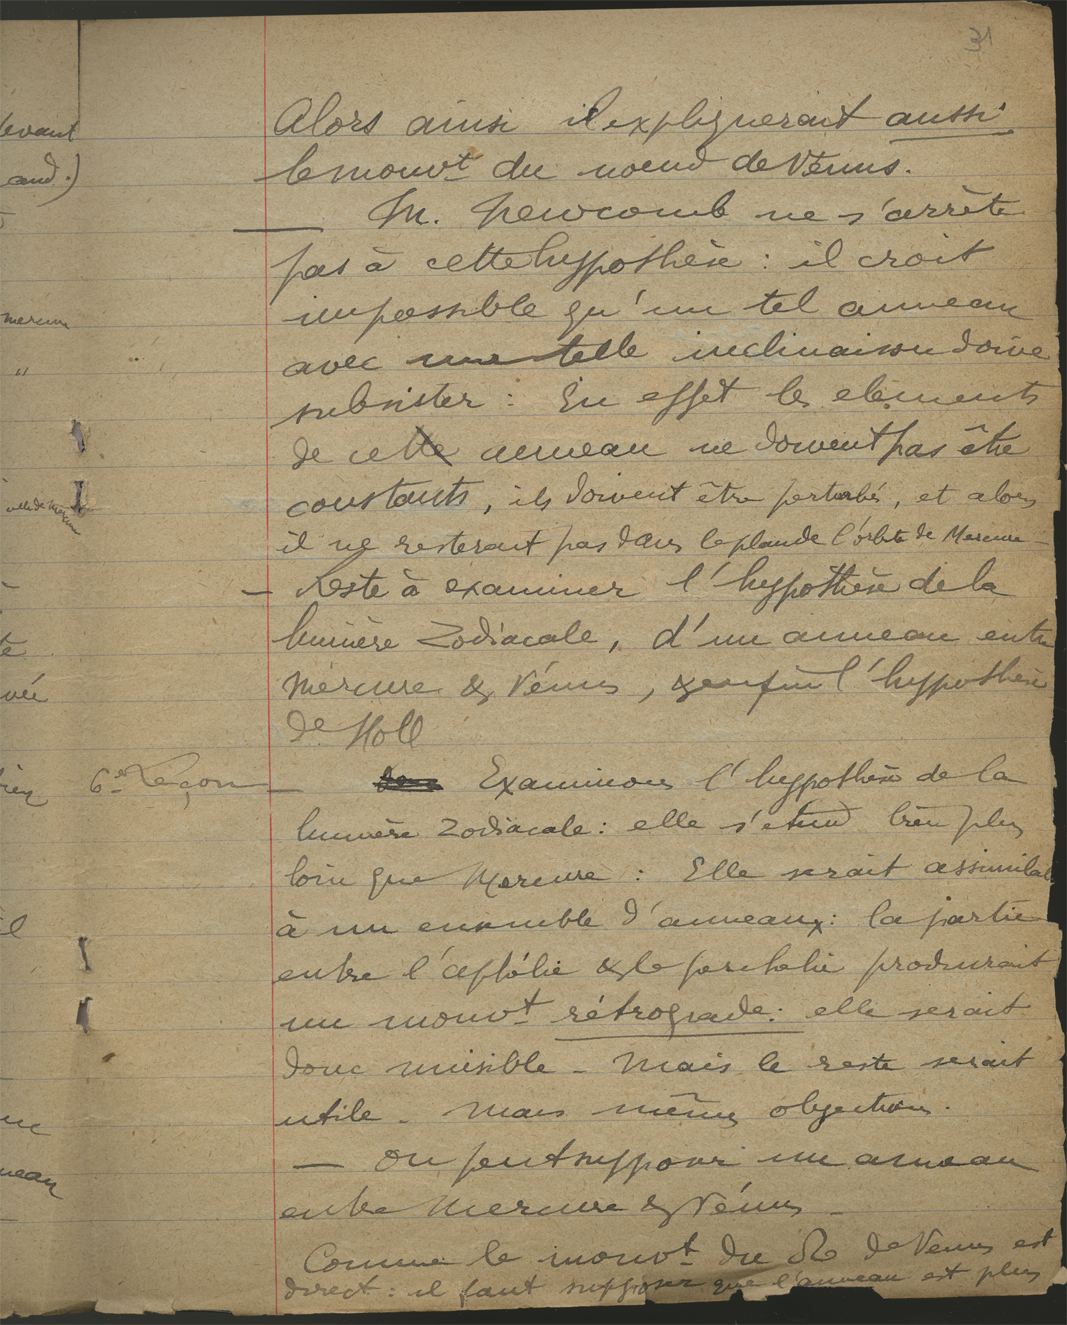 31
Alors ainsi il expliquerait aussi
le mouvt du noeud de Vénus.
— M. Newcomb ne s'arrête
pas à cette hypothèse : il croit
impossible qu'un tel anneau
avec une telle inclinaison doive
subsister : En effet les elements
de cette anneau ne doivent pas être
constants, ils doivent être perturbés, et alors
il ne resterait pas dans le plan de l'orbite de Mercure —
— Reste à examiner l'hypothèse de la
lumière Zodiacale, d'un anneau entre
Mercure & Vénus, & enfin l'hypothèse
de Hall
6e Leçon — Examinons l'hypothèse de la
lumière Zodiacale : elle s'etend bien plus
loin que Mercure : Elle serait assimilable
à un ensemble d'anneaux : la partie
entre l'aphélie & le perihelie produirait
un mouvt rétrograde : elle serait
donc nuisible — Mais le reste serait
utile — Mais mêmes objections.
— On peut supposer un anneau
entre Mercure & Vénus —
Comme le mouvt du ☊ de Venus est
direct : il faut supposer que l'anneau est plus
devant
and.)
mercure
"
celle de Mercure